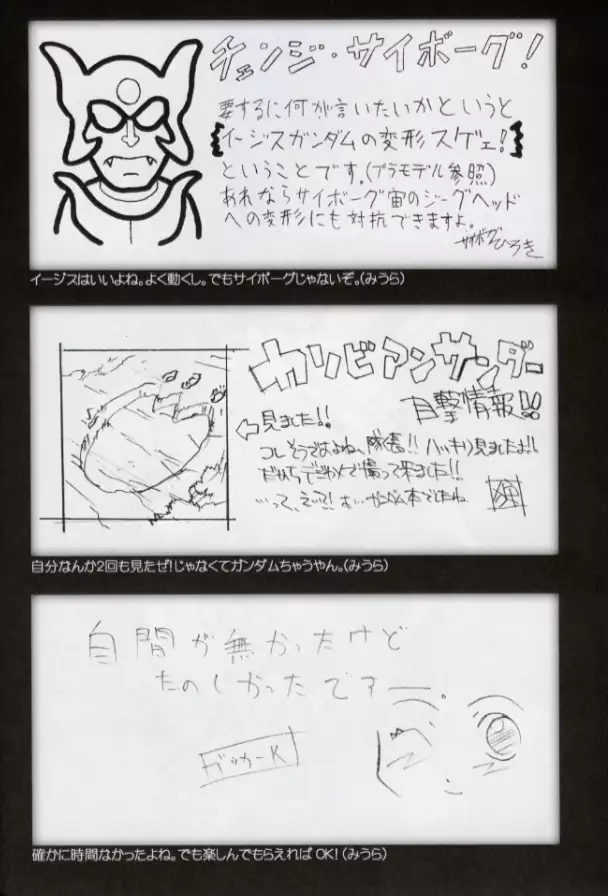 チェンジ・サイボーグ!
要するに何が言いたいかというと
イージスガンダムの変形スゲェ!
ということです。(プラモデル参照)
あれならサイボーグ宙のジーグヘッド
への変形にも対抗できますよ。
サイボーグひろき
イージスはいいよね。よく動くし。でもサイボーグじゃないぞ。(みうら)
カリビアンサンダー
目撃情報!!
見ました!!
コレそうですよね、隊長!! ハッキリ見ましたよ!!
帰って来ました!!
自分なんか2回も見たぜ!じゃなくてガンダムちゃうやん。(みうら)
自間が無かったけど
たのしかったです
ガッカーK
確かに時間なかったよね。でも楽しんでもらえれば OK!(みうら)